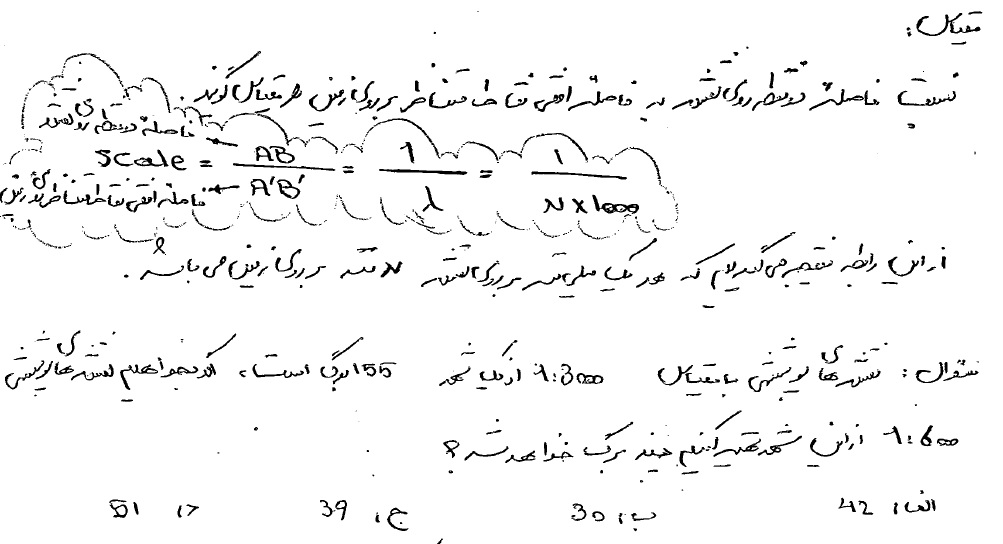 مقیاس:
نسبت فاصله دو نقطه روی نقشه به فاصله افقی نقاط متناظر بر روی زمین را مقیاس گویند.
فاصله دو نقطه روی نقشه
Scale = AB / A'B' = 1 / λ = 1 / N×1000
فاصله افقی نقاط متناظر روی زمین
از این رابطه نتیجه می‌گیریم که هر یک میلی‌متر بر روی نقشه N متر بر روی زمین می‌باشد.
سئوال: نقشه‌های پوششی با مقیاس 1:300 از یک شهر 155 برگ است، اگر بخواهیم نقشه‌های پوششی
1:600 از این شهر تهیه کنیم چند برگ خواهد شد؟
الف، 42 ب، 30 ج، 39 د، 51